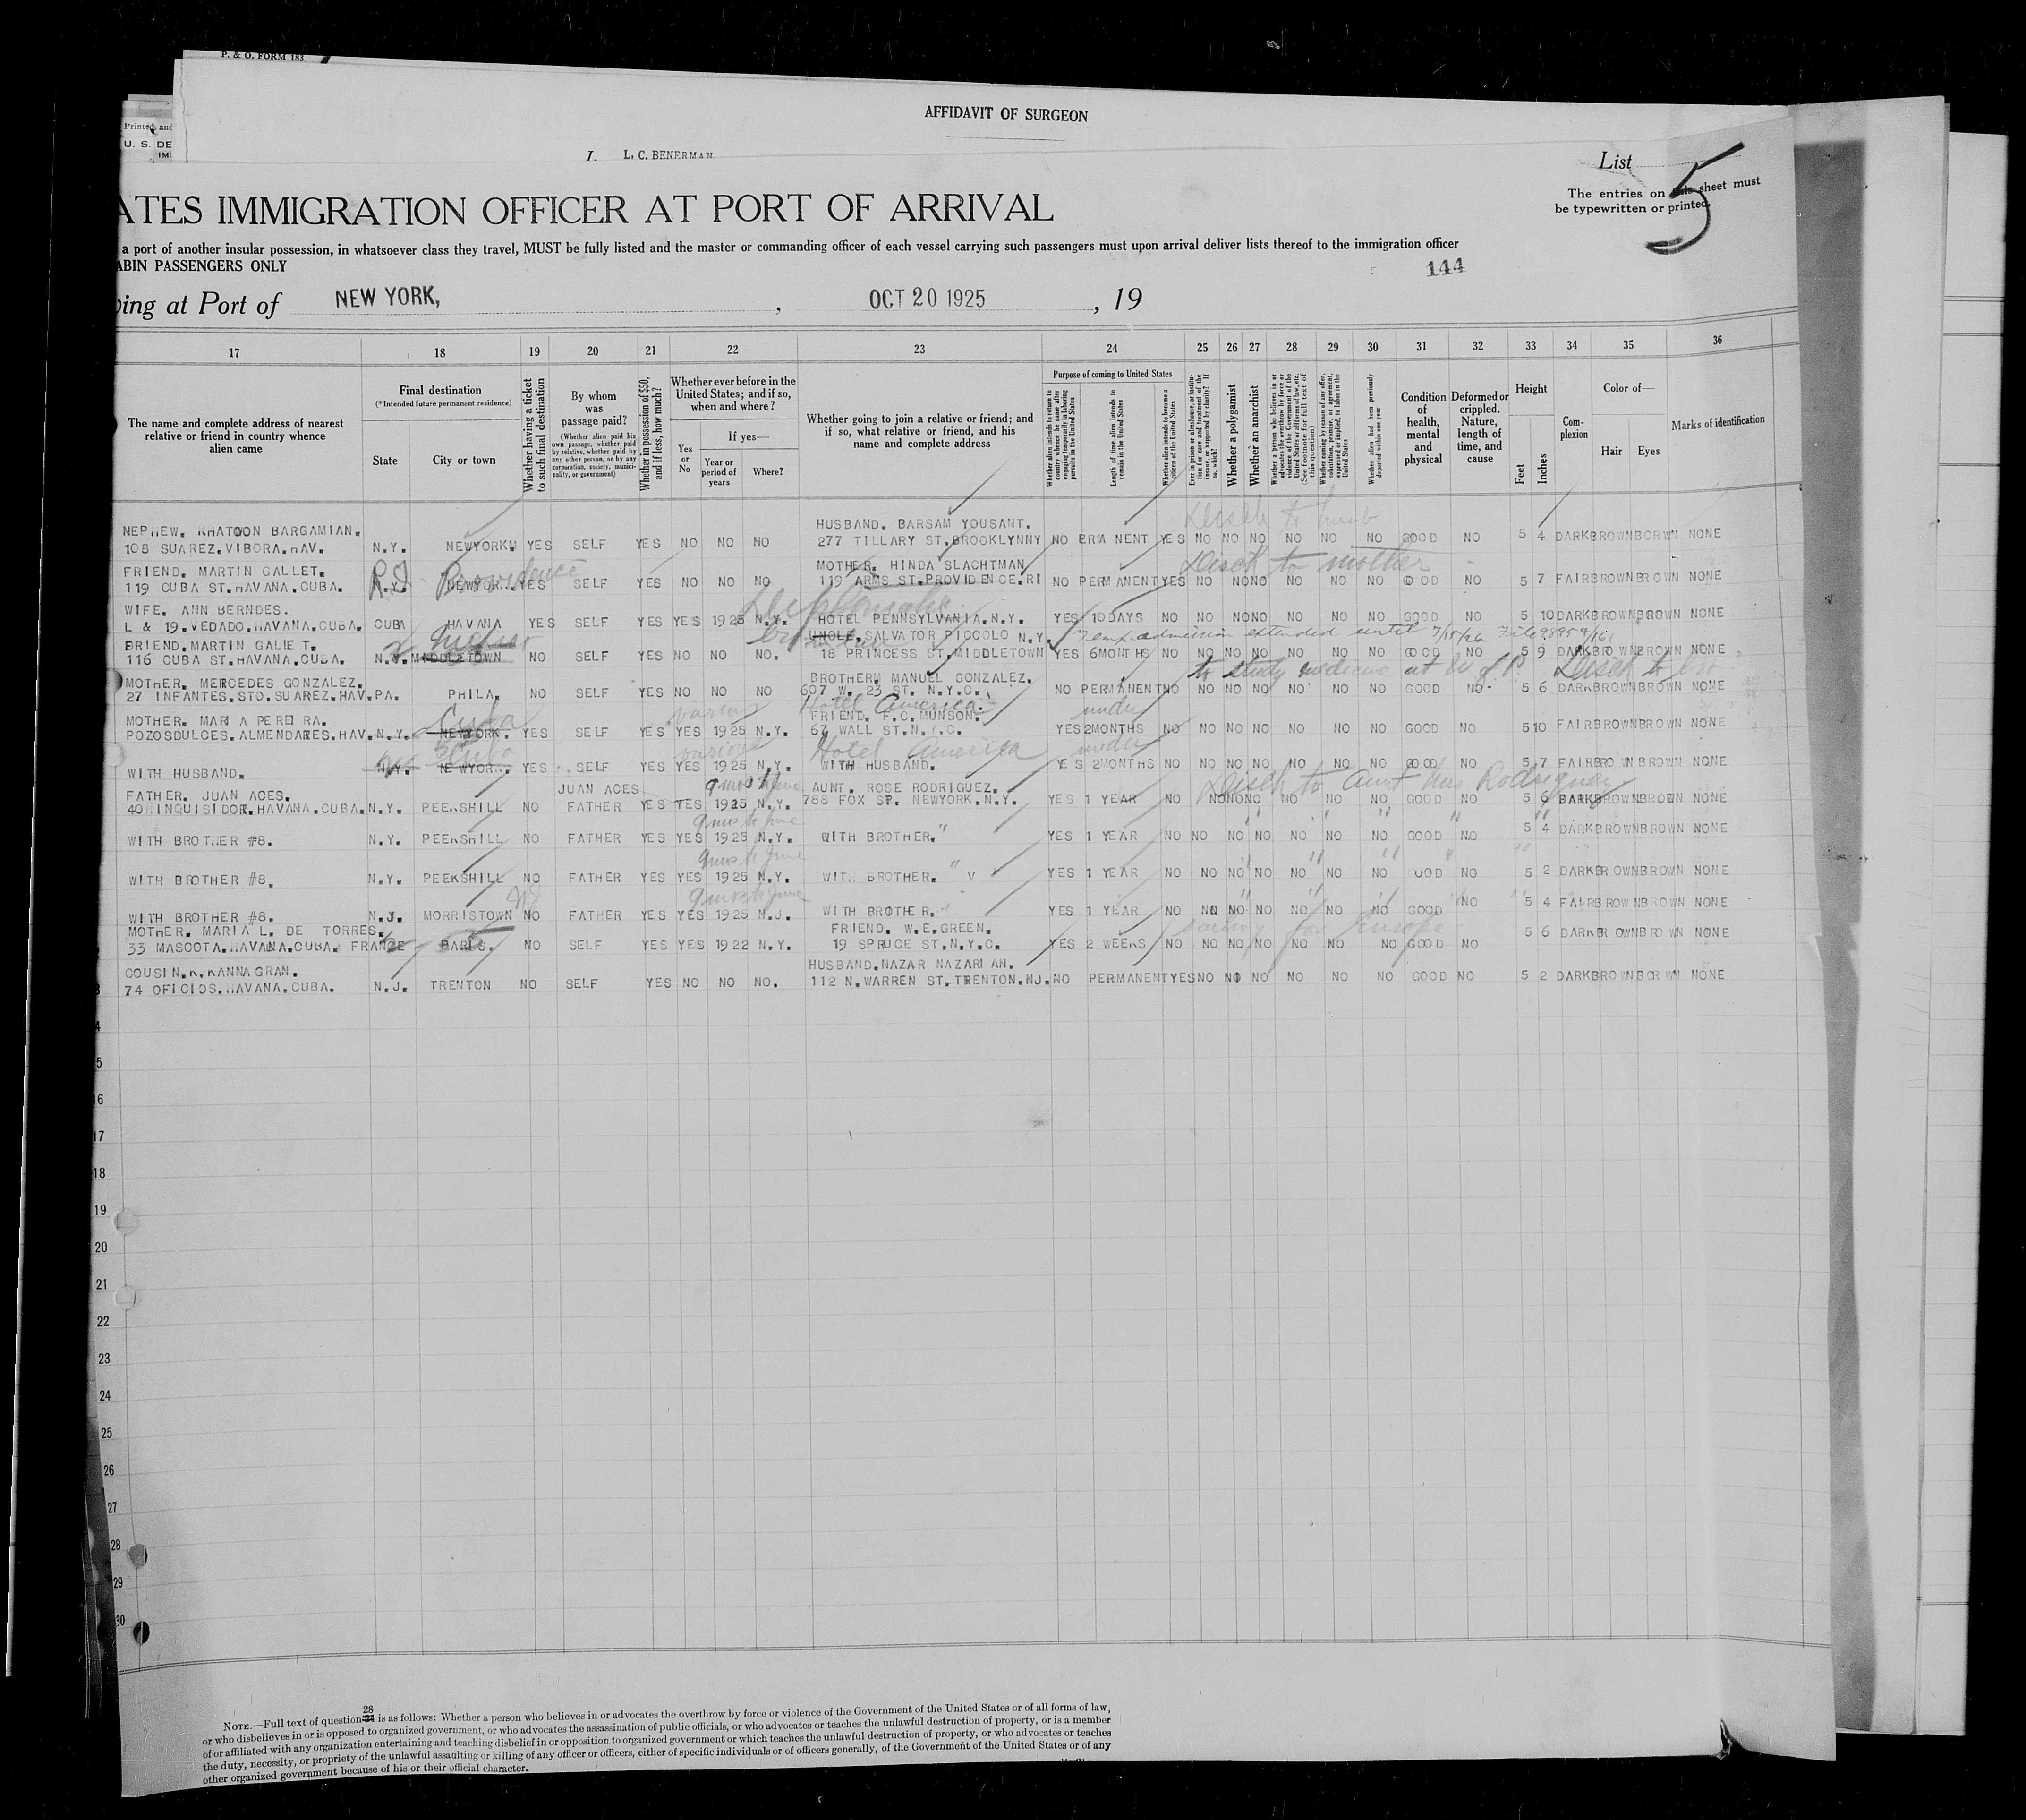 P. & O. FORM 183
Printed, and
U. S. DE
IM
AFFIDAVIT OF SURGEON
I. L. C. BENERMAN
List 5
The entries on this sheet must
be typewritten or printed.
ATES IMMIGRATION OFFICER AT PORT OF ARRIVAL
a port of another insular possession, in whatsoever class they travel, MUST be fully listed and the master or commanding officer of each vessel carrying such passengers must upon arrival deliver lists thereof to the immigration officer
ABIN PASSENGERS ONLY
144
ving at Port of NEW YORK, , OCT 20 1925 , 19
17 18 19 20 21 22 23 24 25 26 27 28 29 30 31 32 33 34 35 36
The name and complete address of nearest
relative or friend in country whence
alien came
Final destination
(*Intended future permanent residence)
State
City or town
Whether having a ticket
to such final destination
By whom
was
passage paid?
(Whether alien paid his
own passage, whether paid
by relative, whether paid by
any other person, or by any
corporation, society, munici-
pality, or government)
Whether in possession of $50,
and if less, how much?
Whether ever before in the
United States; and if so,
when and where?
Yes
or
No
If yes—
Year or
period of
years
Where?
Whether going to join a relative or friend; and
if so, what relative or friend, and his
name and complete address
Purpose of coming to United States
Whether alien intends to return to
country whence he came after
engaging temporarily in laboring
pursuits in the United States
Length of time alien intends to
remain in the United States
Whether alien intends to become a
citizen of the United States
Ever in prison or almshouse, or institu-
tion for care and treatment of the
insane, or supported by charity? If
so, which?
Whether a polygamist
Whether an anarchist
Whether a person who believes in or
advocates the overthrow by force or
violence of the Government of the
United States or all forms of law, etc.
(See footnote for full text of
this question)
Whether coming by reason of any offer,
solicitation, promise, or agreement,
expressed or implied, to labor in the
United States
Whether alien had been previously
deported within one year
Condition
of
health,
mental
and
physical
Deformed or
crippled.
Nature,
length of
time, and
cause
Height
Feet
Inches
Com-
plexion
Color of—
Hair
Eyes
Marks of identification
Disch to husb
NEPHEW. KHATOON BARGAMIAN. HUSBAND. BARSAM YOUSANT.
108 SUAREZ.VIBORA.HAV. N.Y. NEWYORK YES SELF YES NO NO NO 277 TILLARY ST.BROOKLYNNY NO PERMANENT YES NO NO NO NO NO NO GOOD NO 5 4 DARK BROWN BORWN NONE
R.I. Providence Disch to mother
FRIEND. MARTIN GALLET. MOTHER. HINDA SLACHTMAN
119 CUBA ST.HAVANA.CUBA. NEWYOR YES SELF YES NO NO NO 119 ARMS ST.PROVIDENCE.RI NO PERMANENT YES NO NO NO NO NO NO GOOD NO 5 7 FAIR BROWN BROWN NONE
WIFE. ANN BERNDES.
L & 19.VEDADO.HAVANA.CUBA. CUBA HAVANA YES SELF YES YES 1925 N.Y. HOTEL PENNSYLVANIA.N.Y. YES 10DAYS NO NO NO NO NO NO NO GOOD NO 5 10 DARK BROWN BROWN NONE
Temp admission extended until 7/15/26 File
BRIEND.MARTIN GALIE T. UNCLE.SALVATOR PICCOLO N.Y.
116 CUBA ST.HAVANA.CUBA. N.Y. MIDDLETOWN NO SELF YES NO NO NO. 18 PRINCESS ST.MIDDLETOWN YES 6MONTHS NO NO NO NO NO NO NO GOOD NO 5 9 DARK BROWN BROWN NONE
to study medicine at U of P Disch to bro
MOTHER. MERCEDES GONZALEZ. BROTHERM MANUEL GONZALEZ.
27 INFANTES.STO.SUAREZ.HAV. PA. PHILA. NO SELF YES NO NO NO 607 W. 23 ST. N.Y.C. NO PERMANENT NO NO NO NO NO NO NO GOOD NO 5 6 DARK BROWN BROWN NONE
Cuba various Hotel America under
MOTHER. MARIA PEREIRA. FRIEND. F.C.MUNSON.
POZOSDULCES.ALMENDARES.HAV. N.Y. NEWYORK. YES SELF YES YES 1925 N.Y. 67 WALL ST.N.Y.C. YES 2MONTHS NO NO NO NO NO NO NO GOOD NO 5 10 FAIR BROWN BROWN NONE
Cuba various Hotel America under
WITH HUSBAND. N.Y. NEWYORK. YES SELF YES YES 1925 N.Y. WITH HUSBAND. YES 2MONTHS NO NO NO NO NO NO NO GOOD NO 5 7 FAIR BROWN BROWN NONE
9 mos to June Disch to aunt Mrs Rodriguez
FATHER. JUAN ACES. JUAN ACES AUNT. ROSE RODRIGUEZ.
40 INQUISIDOR.HAVANA.CUBA. N.Y. PEEKSHILL NO FATHER YES YES 1925 N.Y. 788 FOX ST. NEWYORK.N.Y. YES 1 YEAR NO NO NO NO NO NO NO GOOD NO 5 6 DARK BROWN BROWN NONE
9 mos to June
WITH BROTHER #8. N.Y. PEEKSHILL NO FATHER YES YES 1925 N.Y. WITH BROTHER. YES 1 YEAR NO NO NO NO NO NO NO GOOD NO 5 4 DARK BROWN BROWN NONE
9 mos to June
WITH BROTHER #8. N.Y. PEEKSHILL NO FATHER YES YES 1925 N.Y. WITH BROTHER. YES 1 YEAR NO NO NO NO NO NO NO GOOD NO 5 2 DARK BROWN BROWN NONE
9 mos to June
WITH BROTHER #8. N.J. MORRISTOWN NO FATHER YES YES 1925 N.J. WITH BROTHER. YES 1 YEAR NO NO NO NO NO NO NO GOOD NO 5 4 FAIR BROWN BROWN NONE
sailing for Europe
MOTHER. MARIA L. DE TORRES. FRIEND. W.E.GREEN.
33 MASCOTA.HAVANA.CUBA. FRANCE PARIS. NO SELF YES YES 1922 N.Y. 19 SPRUCE ST.N.Y.C. YES 2 WEEKS NO NO NO NO NO NO NO GOOD NO 5 6 DARK BROWN BROWN NONE
COUSIN.K.KANNAGRAN. HUSBAND.NAZAR NAZARIAN.
74 OFICIOS.HAVANA.CUBA. N.J. TRENTON NO SELF YES NO NO NO. 112 N.WARREN ST.TRENTON.NJ. NO PERMANENT YES NO NO NO NO NO NO GOOD NO 5 2 DARK BROWN BORWN NONE
4
5
16
17
18
19
20
21
22
23
24
25
26
27
28
29
30
28
NOTE.—Full text of question 24 is as follows: Whether a person who believes in or advocates the overthrow by force or violence of the Government of the United States or of all forms of law,
or who disbelieves in or is opposed to organized government, or who advocates the assassination of public officials, or who advocates or teaches the unlawful destruction of property, or is a member
of or affiliated with any organization entertaining and teaching disbelief in or opposition to organized government or which teaches the unlawful destruction of property, or who advocates or teaches
the duty, necessity, or propriety of the unlawful assaulting or killing of any officer or officers, either of specific individuals or of officers generally, of the Government of the United States or of any
other organized government because of his or their official character.